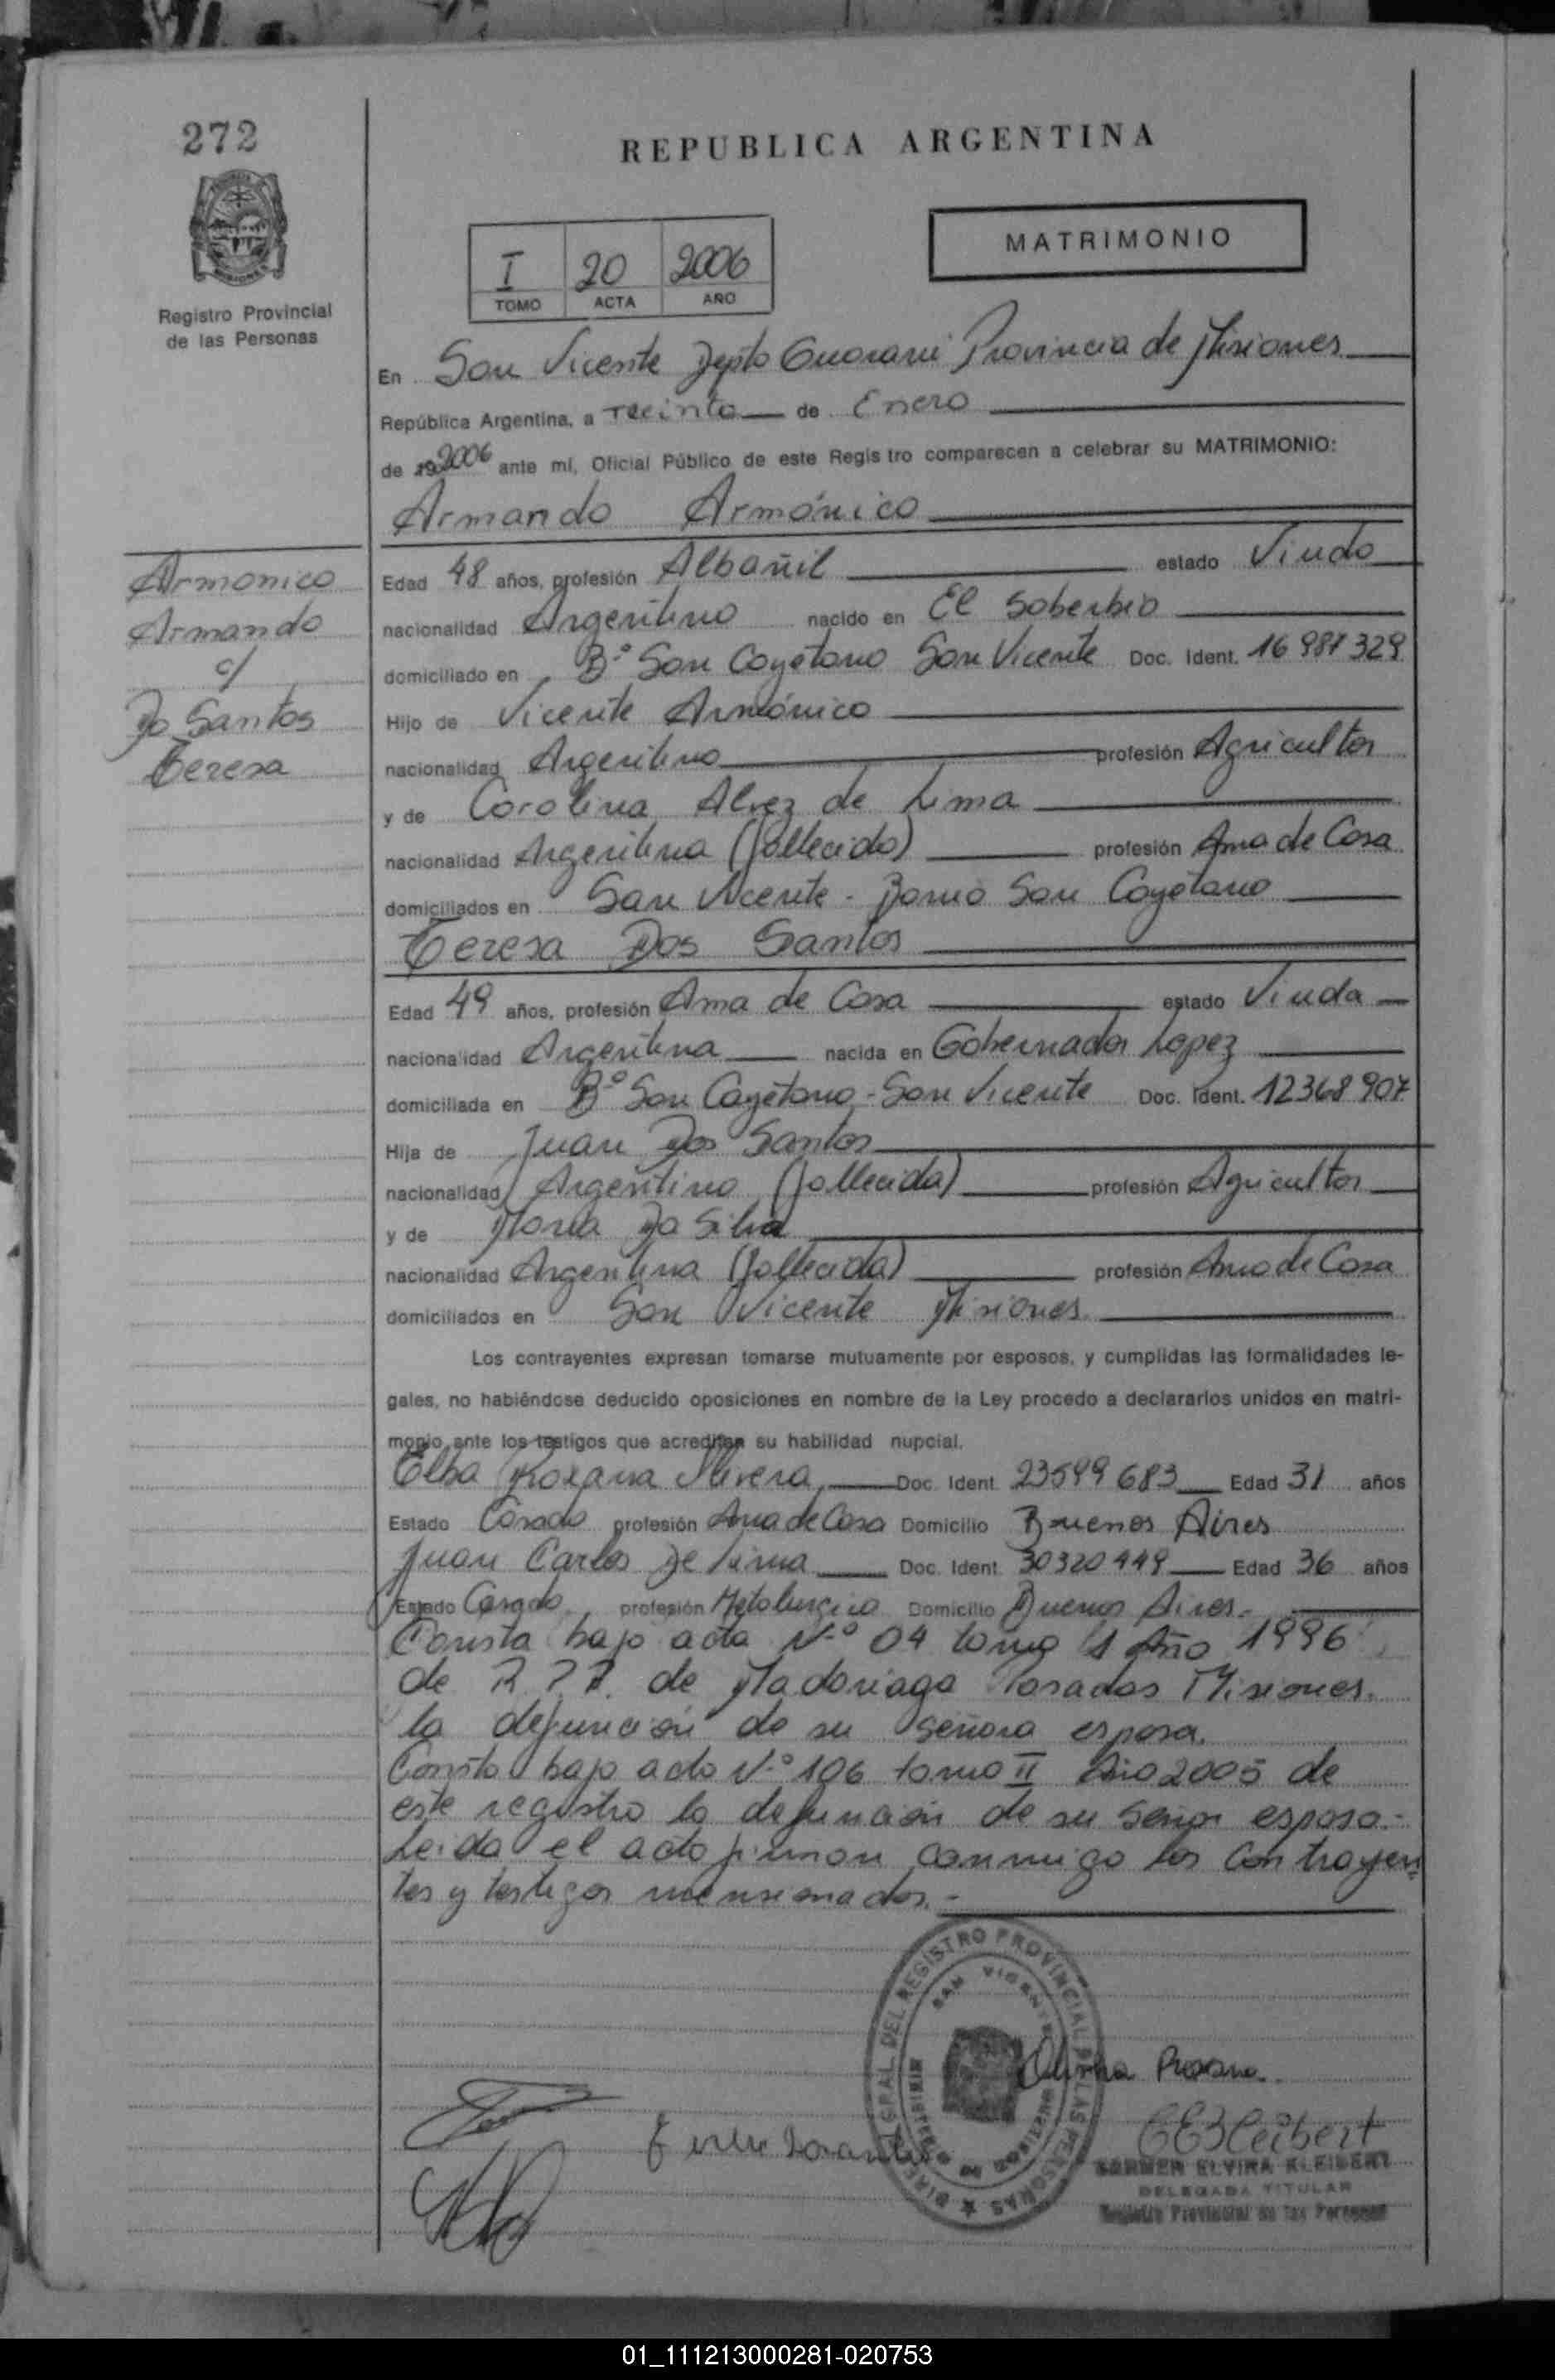 272
REPUBLICA ARGENTINA
MATRIMONIO
I 20 2006
TOMO ACTA AÑO
Registro Provincial
de las Personas
En San Vicente Depto Guarani Provincia de Misiones
República Argentina, a Treinta de Enero
de 19 2006 ante mí, Oficial Público de este Registro comparecen a celebrar su MATRIMONIO:
Armando Armónico
Armonico
Armando
c/
Do Santos
Teresa
Edad 48 años, profesión Albañil estado Viudo
nacionalidad Argentino nacido en El Soberbio
domiciliado en Bº San Cayetano San Vicente Doc. Ident. 16 981 329
Hijo de Vicente Armónico
nacionalidad Argentino profesión Agricultor
y de Carolina Alvez de Lima
nacionalidad Argentina (fallecido) profesión Ama de Casa
domiciliados en San Vicente - Barrio San Cayetano
Teresa Dos Santos
Edad 49 años, profesión Ama de Casa estado Viuda
nacionalidad Argentina nacida en Gobernador Lopez
domiciliada en Bº San Cayetano - San Vicente Doc. Ident. 12368907
Hija de Juan Dos Santos
nacionalidad Argentino (fallecida) profesión Agricultor
y de Maria Da Silva
nacionalidad Argentina (fallecida) profesión Ama de Casa
domiciliados en San Vicente Misiones
Los contrayentes expresan tomarse mutuamente por esposos, y cumplidas las formalidades le-
gales, no habiéndose deducido oposiciones en nombre de la Ley procedo a declararlos unidos en matri-
monio ante los testigos que acreditan su habilidad nupcial.
Elba Roxana Doc. Ident. 23599683 Edad 31 años
Estado Casado profesión Ama de Casa Domicilio Buenos Aires
Juan Carlos De Lima Doc. Ident. 30320449 Edad 36 años
Estado Casado profesión Metalurgico Domicilio Buenos Aires.
Consta bajo acta Nº 04 tomo 1 Año 1996
de R.P.P. de Madariaga Posadas Misiones.
la defuncion de su señora esposa.
Consta bajo acta Nº 106 tomo II Año 2005 de
este registro la defuncion de su señor esposo.-
Leida el acta firman conmigo los Contrayen=
tes y testigos mensionados.-
DEL REGISTRO PROVINCIAL DE LAS PERSONAS
SAN VICENTE
MISIONES
Roxana
CEKleibert
CARMEN ELVIRA KLEIBERT
DELEGADA TITULAR
Registro Provincial de las Personas
01_111213000281-020753